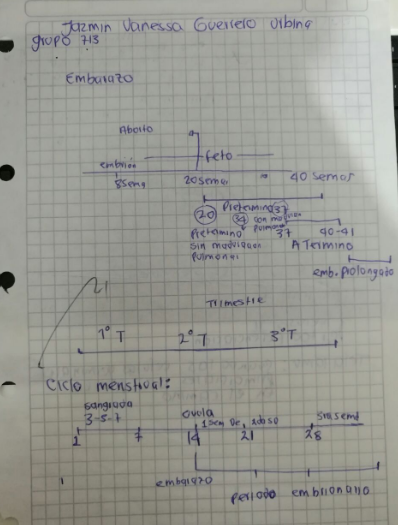 Jazmin Vanessa Guerrero Urbina
grupo 713
Embarazo
Aborto
embrion feto
8sem 20semas 40 semas
20 Pretermino 37
34 con maduracion
pulmonar
Pretermino 37 40-41
sin maduracion A Termino
pulmonar
emb. Prolongado
Trimestre
1° T 2° T 3° T
Ciclo menstrual:
sangrado
3-5-7 ovula
1sem de
1 7 14 21 28
embarazo
periodo embrionario